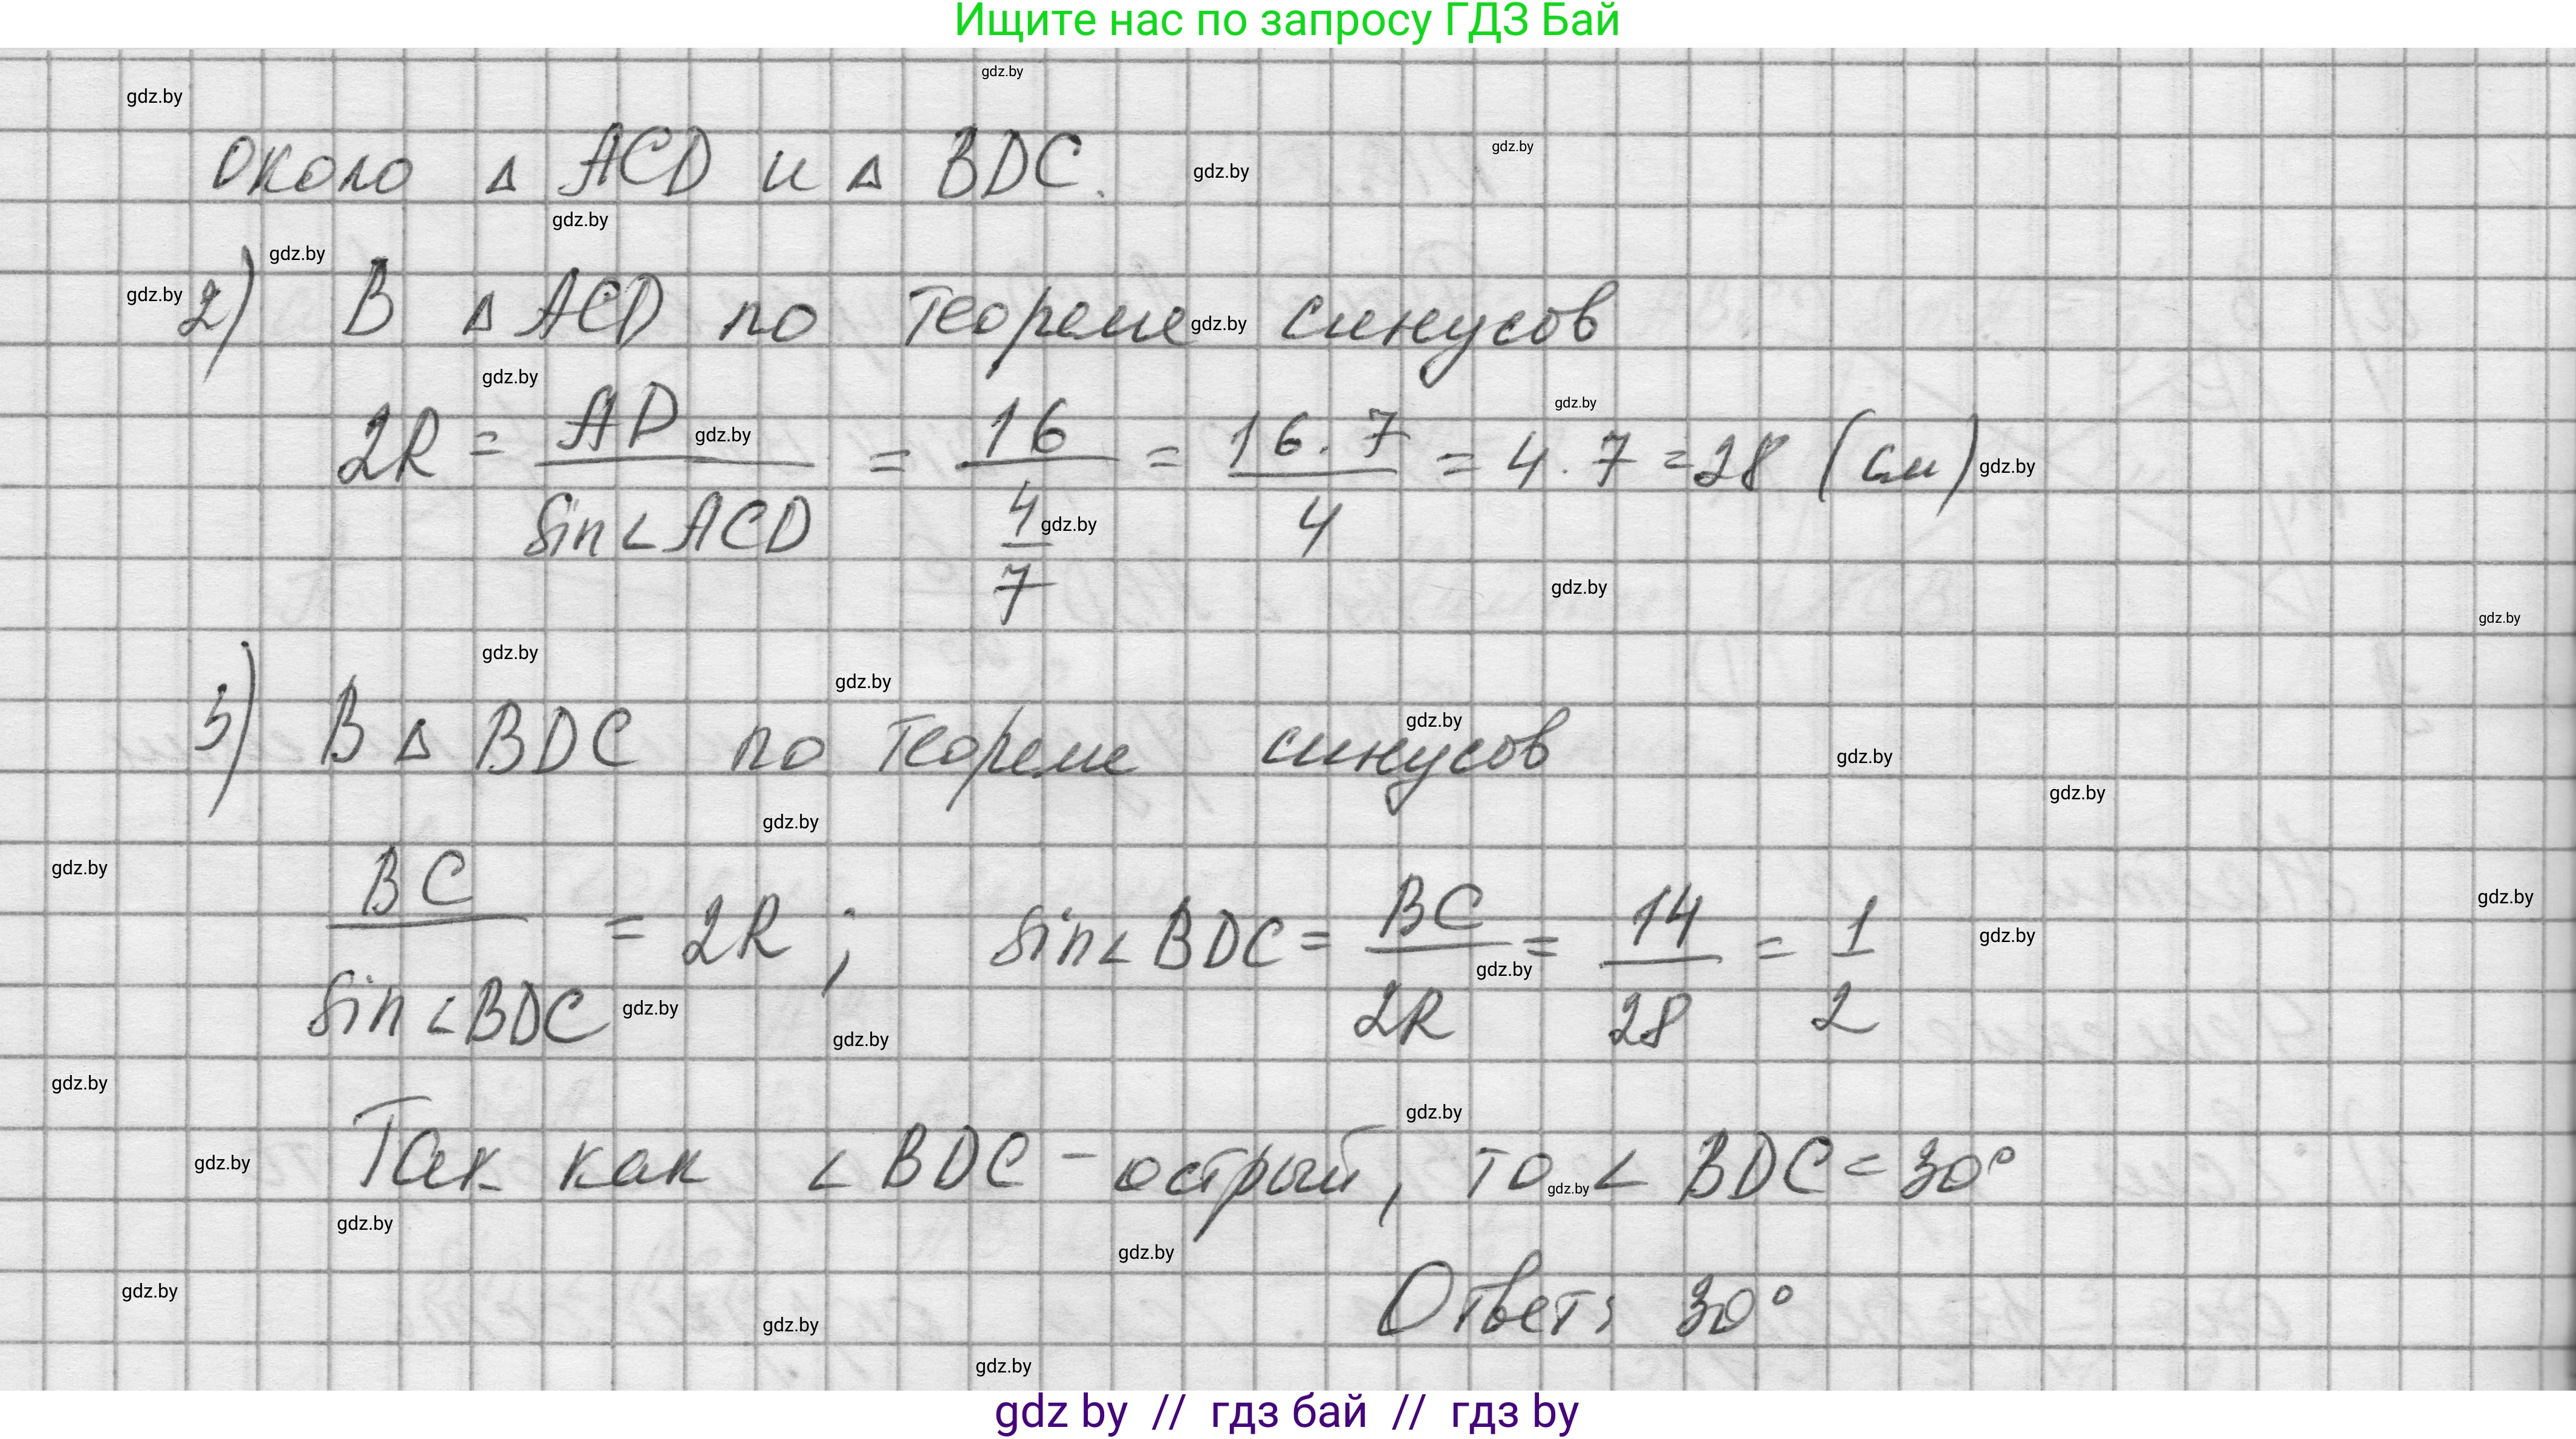 Ищите нас по запросу ГДЗ Бай
gdz.by
gdz.by
около Δ ACD и Δ BDC.
gdz.by
gdz.by
gdz.by
gdz.by
gdz.by
2) В Δ ACD по теореме синусов
gdz.by
gdz.by
gdz.by
gdz.by
2R = AD / sin∠ACD = 16 / (4/7) = 16·7 / 4 = 4·7 = 28 (см)
gdz.by
gdz.by
gdz.by
gdz.by
gdz.by
gdz.by
gdz.by
3) В Δ BDC по теореме синусов
gdz.by
gdz.by
gdz.by
gdz.by
gdz.by
BC / sin∠BDC = 2R ; sin∠BDC = BC / 2R = 14 / 28 = 1 / 2
gdz.by
gdz.by
gdz.by
gdz.by
gdz.by
gdz.by
gdz.by
Так как ∠BDC - острый, то ∠BDC = 30°
gdz.by
gdz.by
gdz.by
gdz.by
gdz.by
Ответ: 30°
gdz.by
gdz.by
gdz by // гдз бай // гдз by